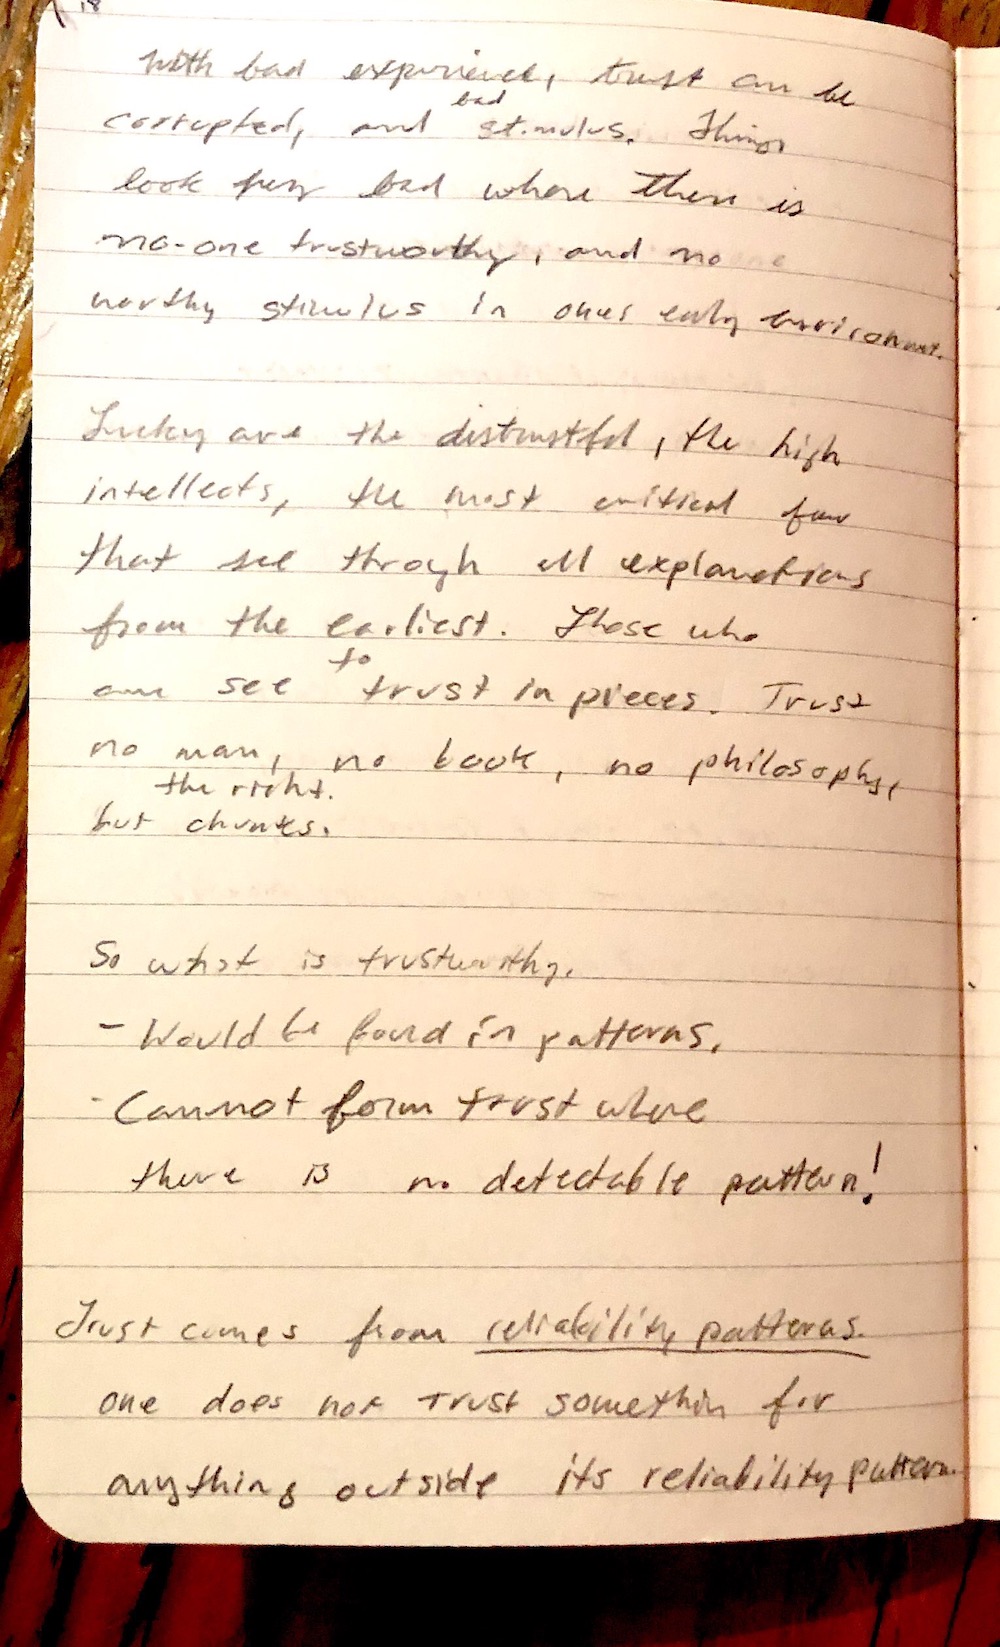 18
With bad experience, trust can be
bad
corrupted, and stimulus. Things
look very bad where there is
no-one trustworthy, and no
worthy stimulus in ones early environment.
Lucky are the distrustful, the high
intellects, the most critical few
that see throgh all explanations
from the earliest. Those who
to
can see trust in pieces. Trust
no man, no book, no philosophy,
the right.
but chunks.
So what is trustworthy.
- Would be found in patterns.
- Cannot form trust where
there is no detectable pattern!
Trust comes from reliability patterns.
one does not trust somethin for
anything outside its reliability pattern.